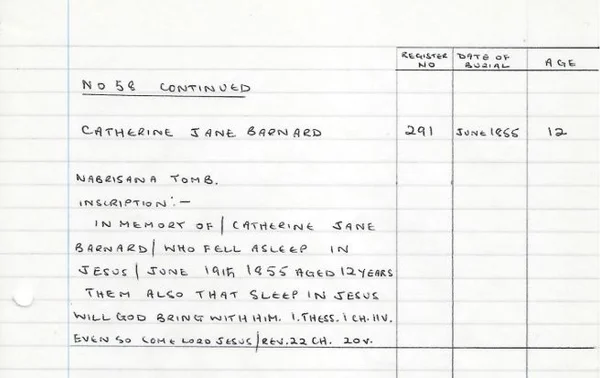 REGISTER NO DATE OF BURIAL AGE
NO 58 CONTINUED
CATHERINE JANE BARNARD 291 JUNE 1855 12
NABRISANA TOMB.
INSCRIPTION:-
IN MEMORY OF / CATHERINE JANE
BARNARD / WHO FELL ASLEEP IN
JESUS / JUNE 19th 1855 AGED 12 YEARS
THEM ALSO THAT SLEEP IN JESUS
WILL GOD BRING WITH HIM. 1. THESS. 1 CH. 11V.
EVEN SO COME LORD JESUS / REV. 22 CH. 20V.